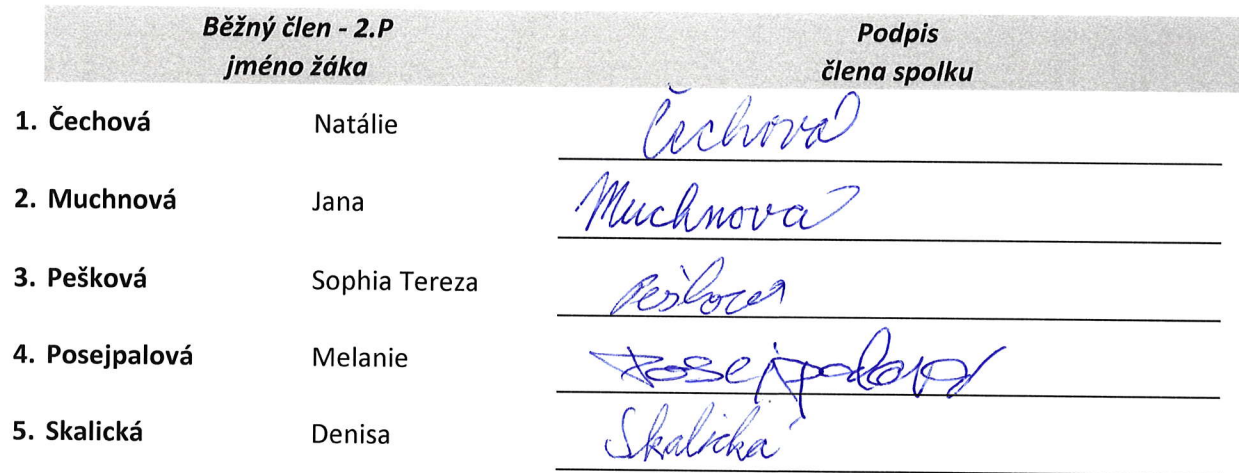 Běžný člen - 2.P Podpis
jméno žáka člena spolku
1. Čechová Natálie Čechová
2. Muchnová Jana Muchnová
3. Pešková Sophia Tereza Pešková
4. Posejpalová Melanie Posejpalová
5. Skalická Denisa Skalická